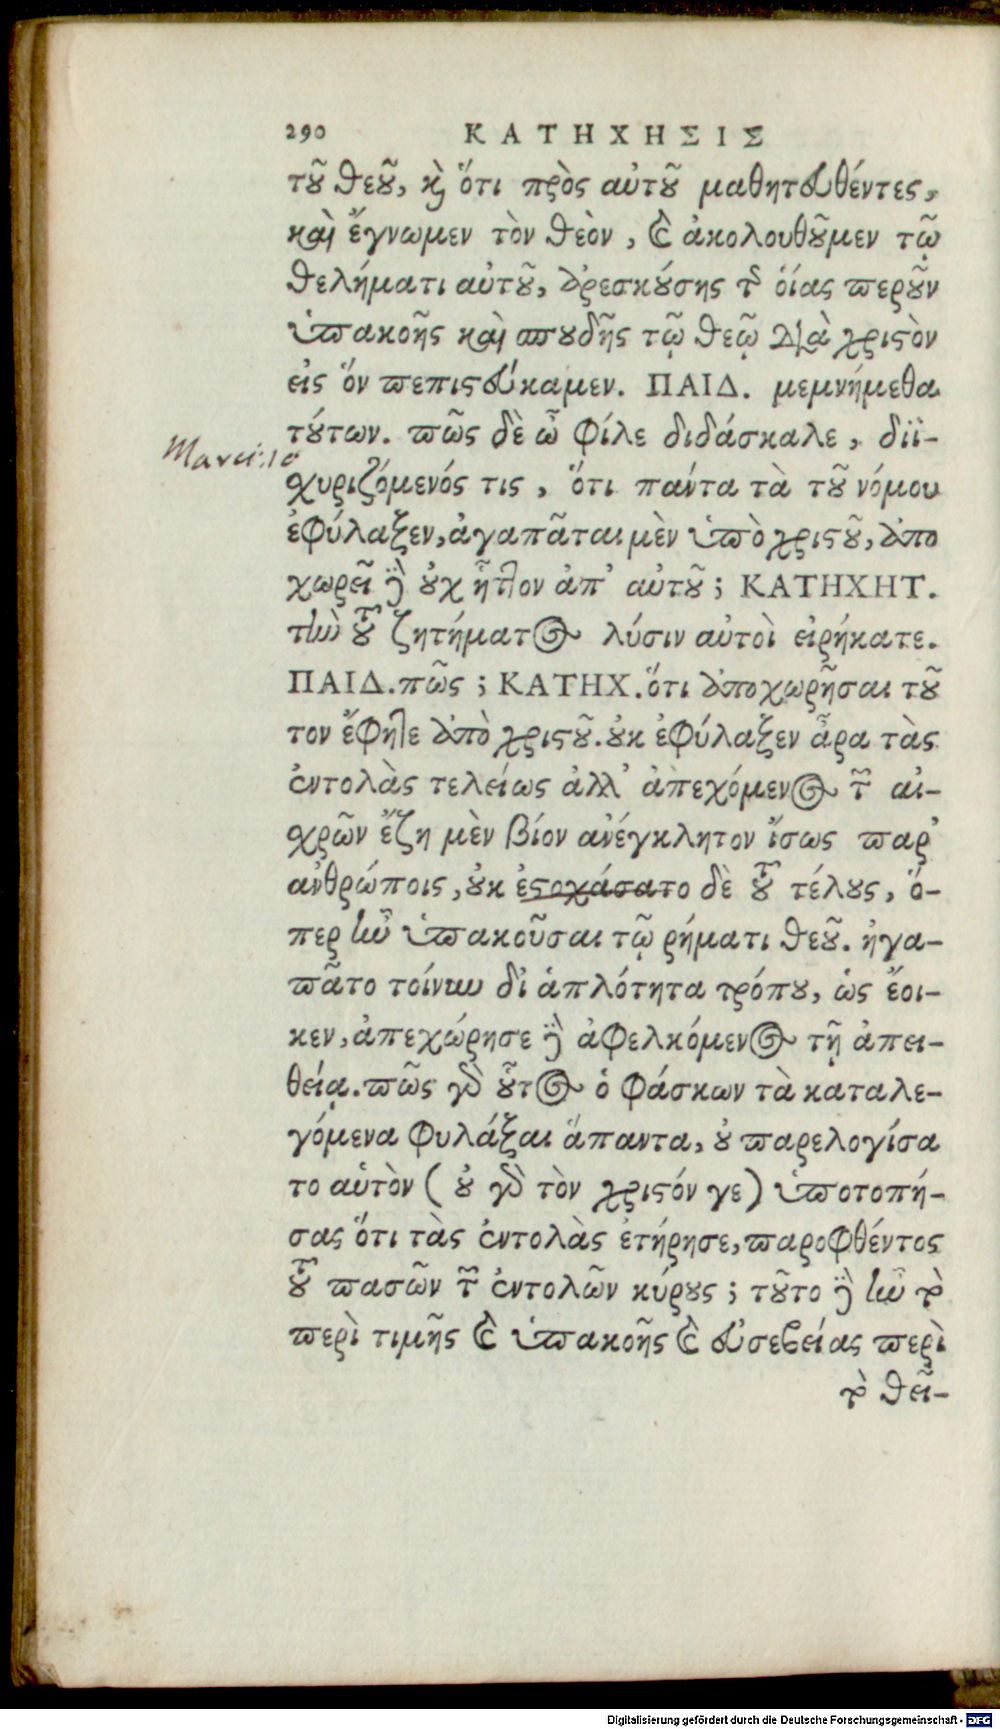 290 ΚΑΤΗΧΗΣΙΣ
τοῦ θεοῦ, καὶ ὅτι πρὸς αὐτοῦ μαθητευθέντες,
καὶ ἔγνωμεν τὸν θεὸν, καὶ ἀκολουθοῦμεν τῷ
θελήματι αὐτοῦ, ἀρεσκούσης τῆς ὁίας περοῦν
ὑπακοῆς καὶ σπουδῆς τῷ θεῷ διὰ χριστὸν
εἰς ὅν πεπιστεύκαμεν. ΠΑΙΔ. μεμνήμεθα
τούτων. πῶς δὲ ὦ φίλε διδάσκαλε, διϊ-
σχυριζόμενός τις, ὅτι πάντα τὰ τοῦ νόμου
ἐφύλαξεν, ἀγαπᾶται μὲν ὑπὸ χριστοῦ, ἀπο
χωρεῖ δὲ οὐχ ἧττον ἀπ' αὐτοῦ; ΚΑΤΗΧΗΤ.
τὴν τοῦ ζητήματος λύσιν αὐτοὶ εἰρήκατε.
ΠΑΙΔ. πῶς; ΚΑΤΗΧ. ὅτι ἀποχωρῆσαι τοῦ
τον ἔφητε ἀπὸ χριστοῦ. οὐκ ἐφύλαξεν ἆρα τὰς
ἐντολὰς τελείως ἀλλ' ἀπεχόμενος τῶν αἰ-
σχρῶν ἔζη μὲν βίον ἀνέγκλητον ἴσως παρ'
ἀνθρώποις, οὐκ ἐστοχάσατο δὲ τοῦ τέλους, ὅ-
περ ἦν ὑπακοῦσαι τῷ ρήματι θεοῦ. ἠγα-
πᾶτο τοίνυν δι' ἁπλότητα τρόπου, ὡς ἔοι-
κεν, ἀπεχώρησε δὲ ἀφελκόμενος τῇ ἀπει-
θείᾳ. πῶς γὰρ οὗτος ὁ φάσκων τὰ καταλε-
γόμενα φυλάξαι ἅπαντα, οὐ παρελογίσα
το αὑτὸν (οὐ γὰρ τὸν χριστόν γε) ὑποτοπή-
σας ὅτι τὰς ἐντολὰς ἐτήρησε, παροφθέντος
τοῦ πασῶν τῶν ἐντολῶν κύρους; τοῦτο δὲ ἦν τὸ
περὶ τιμῆς καὶ ὑπακοῆς καὶ εὐσεβείας περὶ
τὸ θεῖ-
Digitalisierung gefördert durch die Deutsche Forschungsgemeinschaft - DFG